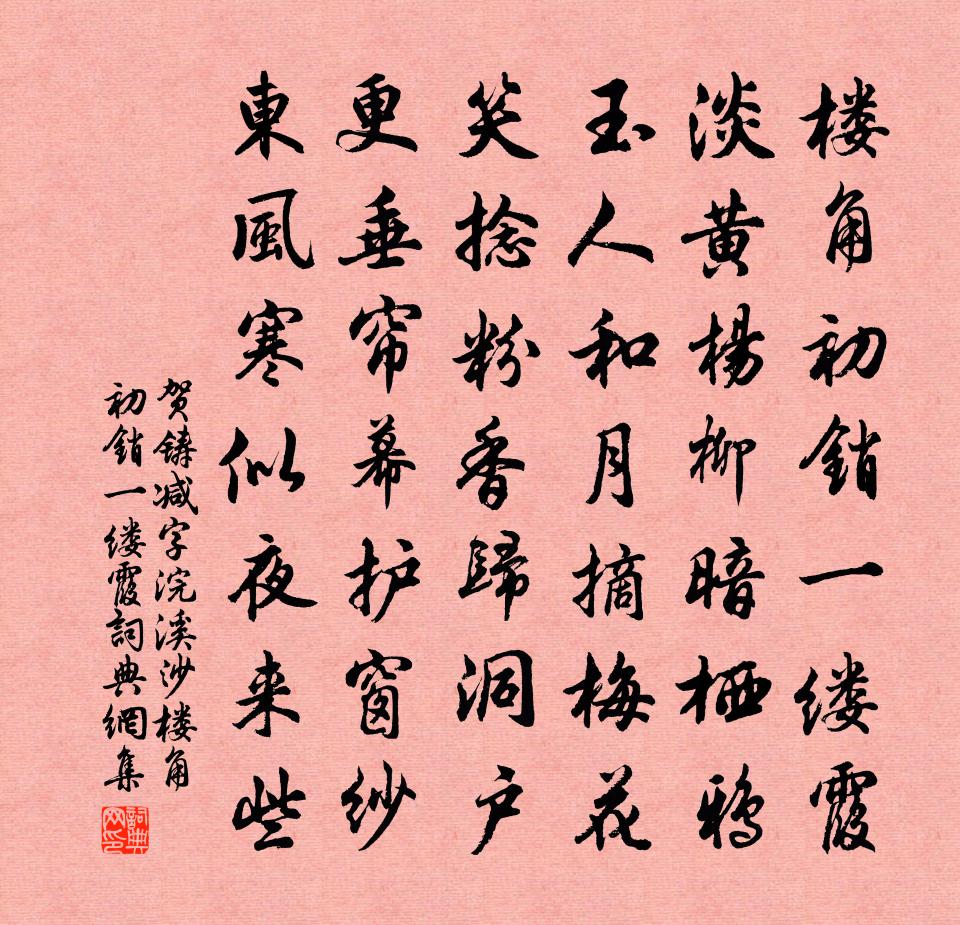 楼角初銷一缕霞
淡黄楊柳暗栖鸦
玉人和月摘梅花
笑捻粉香歸洞户
更垂帘幕护窗纱
東風寒似夜来些
贺鑄减字浣溪沙楼角
初銷一缕霞詞典網集
詞典
网印